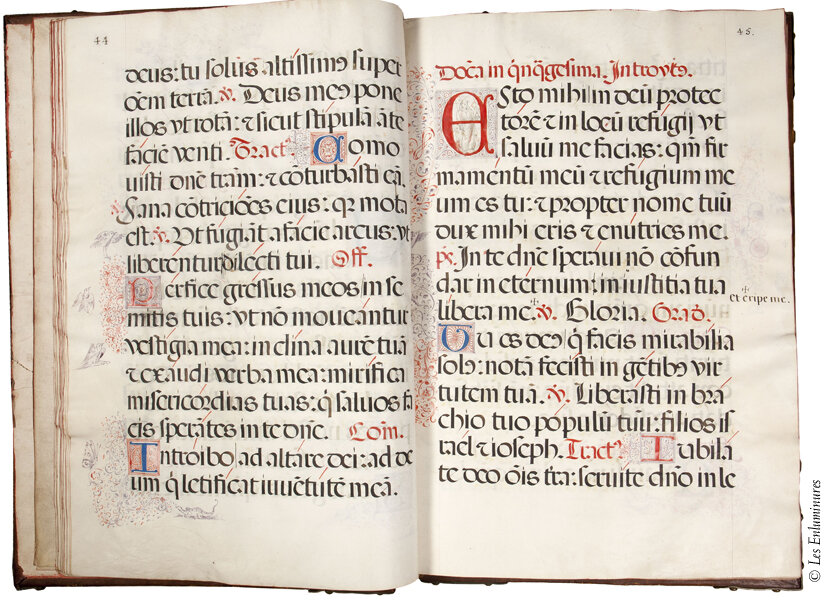 44
deus: tu solus altissimꝰ super
oem̄ terrā. ℣. Deus meꝰ pone
illos vt rotā: ⁊ sicut stipulā āte
faciē venti. Tractꝰ. Como
uisti dn̄e tr̄am: ⁊ cōturbasti eā.
Sana cōtriciōes eius: qꝛ mota
est. ℣. Vt fugiāt a facie arcus: vt
liberentur dilecti tui. Off.
Perfice gressus meos in se
mitis tuis: vt nō moueantur
vestigia mea: inclina aurē tuā
⁊ exaudi verba mea: mirifica
misericordias tuas: q̄ saluos fa
cis sperātes in te dn̄e. Com̄.
Introibo ad altare dei: ad de
um q̄ letificat iuuētutē meā.
45.
Dn̄ca in q̄nq̄gesima. Introytꝰ.
ESto mihi in deū protec
torē ⁊ in locū refugij vt
saluū me facias: qm̄ fir
mamentū meū ⁊ refugium me
um es tu: ⁊ propter nomē tuū
dux mihi eris ⁊ enutries me.
ps. In te dn̄e speraui nō cōfun
dar in eternum: in iustitia tua
libera me. ℣. Gloria. Grad.
et eripe me.
Tu es deꝰ q̄ facis mirabilia
solꝰ: notā fecisti in gētibꝰ vir
tutem tuā. ℣. Liberasti in bra
chio tuo populū tuū: filios is
rael ⁊ ioseph. Tractꝰ. Iubila
te deo ōis t̄ra: seruite dn̄o in le
© Les Enluminures